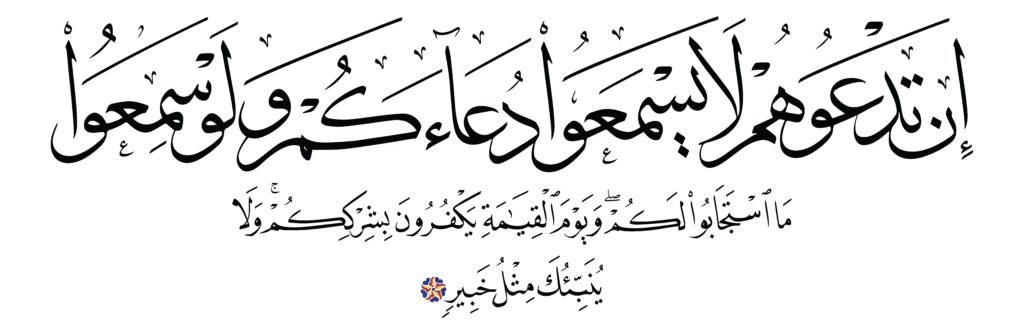 إِن تَدْعُوهُمْ لَا يَسْمَعُوا۟ دُعَآءَكُمْ وَلَوْ سَمِعُوا۟
مَا ٱسْتَجَابُوا۟ لَكُمْ ۖ وَيَوْمَ ٱلْقِيَـٰمَةِ يَكْفُرُونَ بِشِرْكِكُمْ ۚ وَلَا
يُنَبِّئُكَ مِثْلُ خَبِيرٍ